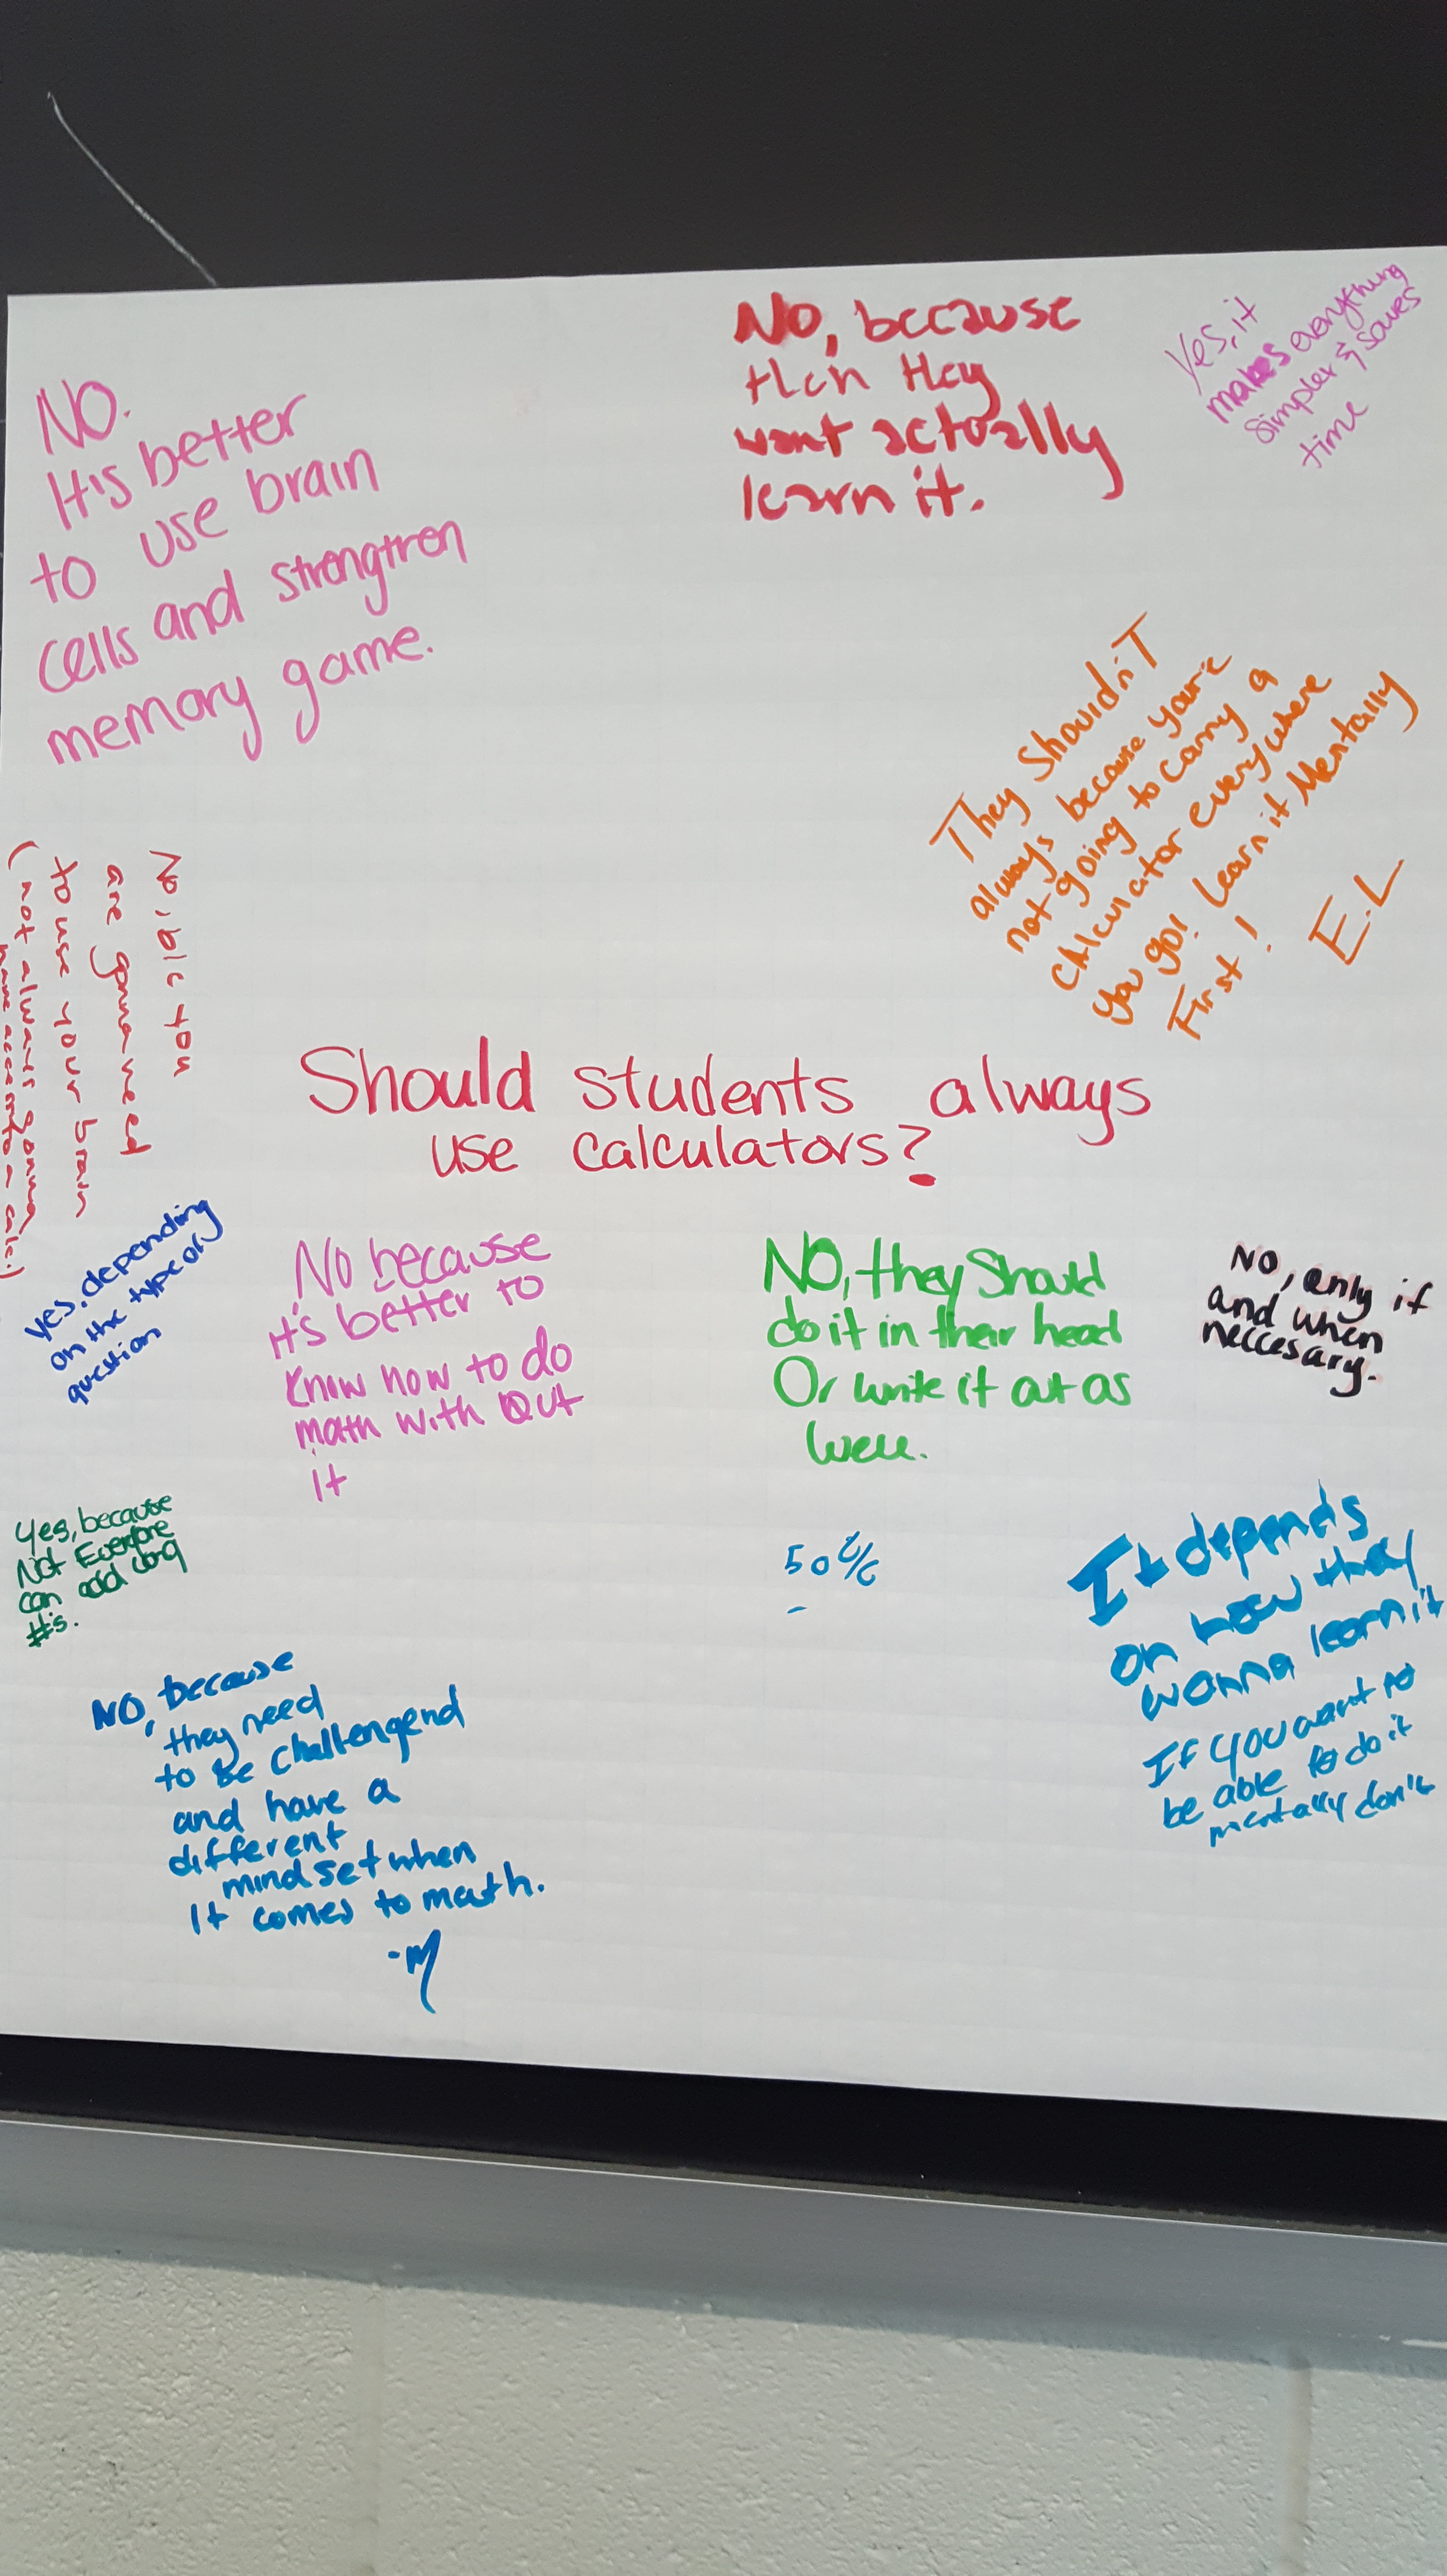 NO.
It's better
to use brain
cells and strengtren
memory game.
No, because
then they
wont actually
learn it.
Yes, it
makes everything
simpler & saves
time
They Shouldn't
always because your'e
not going to carry a
calculator everywhere
you go! Learn it Mentally
First!
E.L
No, b/c you
are gonna need
to use your brain
(not always gonna
have access to a calc.)
Should students always
use calculators?
yes, depending
on the type of
question
No because
it's better to
know how to do
math with out
it
NO, they Should
do it in their head
Or write it out as
well.
NO, only if
and when
neccesary.
Yes, because
Not Everyone
can add long
#'s.
50%
It depends
on how they
wanna learn it
If you want to
be able to do it
mentally don't
NO, because
they need
to be challengend
and have a
different
mindset when
It comes to math.
-M